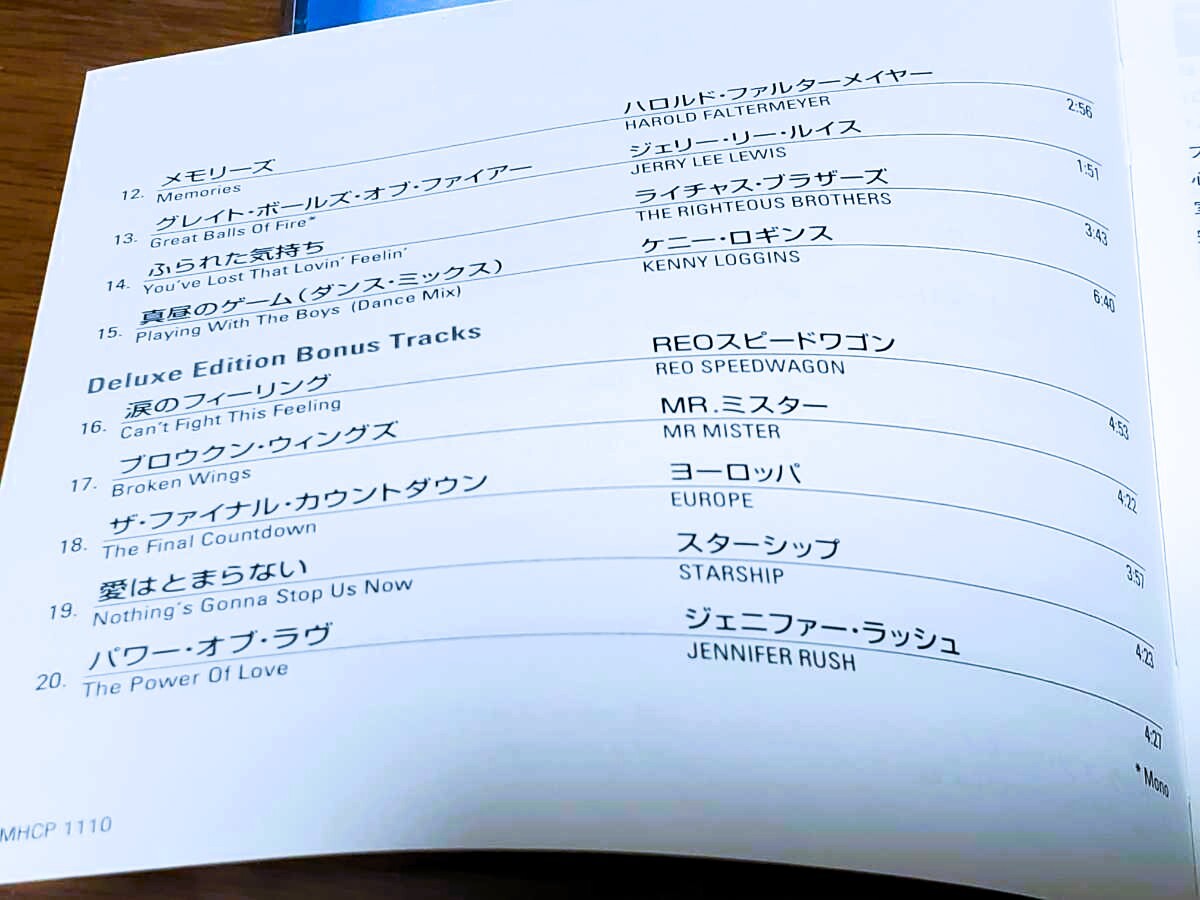 12. メモリーズ ハロルド・ファルターメイヤー
Memories HAROLD FALTERMEYER 2:56
13. グレイト・ボールズ・オブ・ファイアー ジェリー・リー・ルイス
Great Balls Of Fire* JERRY LEE LEWIS 1:51
14. ふられた気持ち ライチャス・ブラザーズ
You've Lost That Lovin' Feelin' THE RIGHTEOUS BROTHERS 3:43
15. 真昼のゲーム(ダンス・ミックス) ケニー・ロギンス
Playing With The Boys (Dance Mix) KENNY LOGGINS 6:40
Deluxe Edition Bonus Tracks
16. 涙のフィーリング REOスピードワゴン
Can't Fight This Feeling REO SPEEDWAGON 4:53
17. ブロウクン・ウィングズ MR.ミスター
Broken Wings MR MISTER 4:22
18. ザ・ファイナル・カウントダウン ヨーロッパ
The Final Countdown EUROPE 3:57
19. 愛はとまらない スターシップ
Nothing's Gonna Stop Us Now STARSHIP 4:23
20. パワー・オブ・ラヴ ジェニファー・ラッシュ
The Power Of Love JENNIFER RUSH 4:27
* Mono
MHCP 1110